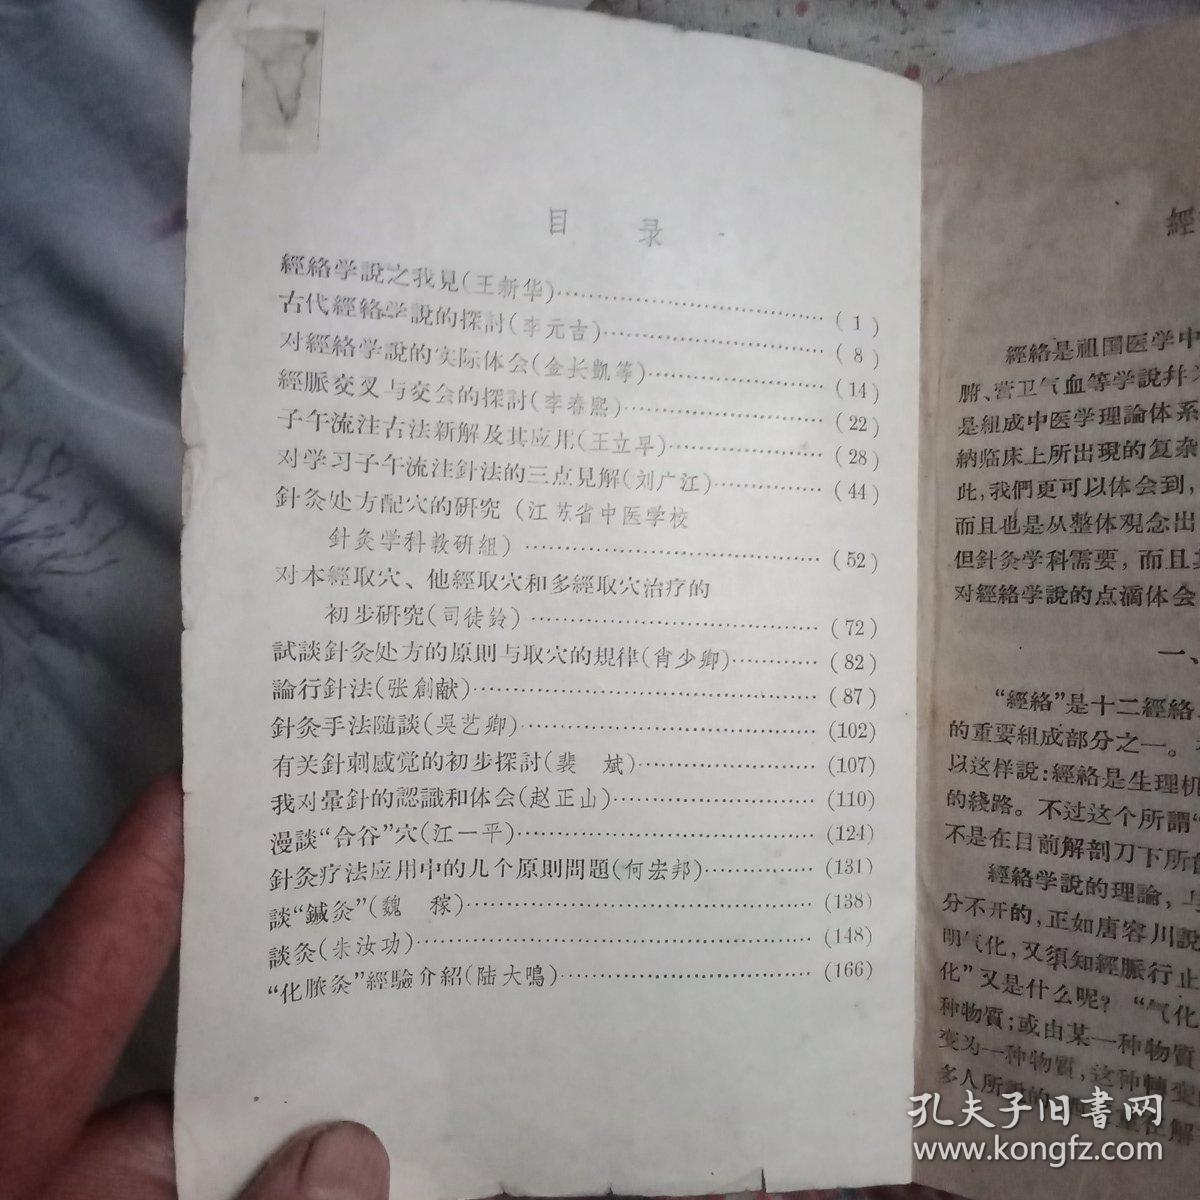 目 录
經絡学說之我見(王新华)……………………( 1 )
古代經絡学說的探討(李元吉)……………………( 8 )
对經絡学說的实际体会(金长凱等)………………(14)
經脈交叉与交会的探討(李春熙)…………………(22)
子午流注古法新解及其应用(王立早)……………(28)
对学习子午流注針法的三点見解(刘广江)………(44)
針灸处方配穴的研究 (江苏省中医学校
針灸学科教研組) ……………………………(52)
对本經取穴、他經取穴和多經取穴治疗的
初步研究(司徒鈴) ……………………………(72)
試談針灸处方的原則与取穴的規律(肖少卿)………(82)
論行針法(张創献)……………………………………(87)
針灸手法随談(吳艺卿)………………………………(102)
有关針刺感觉的初步探討(裴 斌)…………………(107)
我对暈針的認識和体会(赵正山)……………………(110)
漫談“合谷”穴(江一平)………………………………(124)
針灸疗法应用中的几个原則問題(何宏邦)…………(131)
談“鍼灸”(魏 稼)……………………………………(138)
談灸(朱汝功)…………………………………………(148)
“化脓灸”經驗介紹(陆大鳴)…………………………(166)
經
經絡是祖国医学中
腑、营卫气血等学說并
是組成中医学理論体系
納临床上所出現的复杂
此,我們更可以体会到,
而且也是从整体观念出
但針灸学科需要，而且
对經絡学說的点滴体会
一、
“經絡”是十二經絡、
的重要組成部分之一。
以这样說:經絡是生理机
的綫路。不过这个所謂“
不是在目前解剖刀下所
經絡学說的理論，与
分不开的,正如唐容川說
明气化,又須知經脈行止
化”又是什么呢？“气化
种物質;或由某一种物質
变为一种物質,这种轉变
多人所說的
孔夫子旧书网
www.kongfz.com